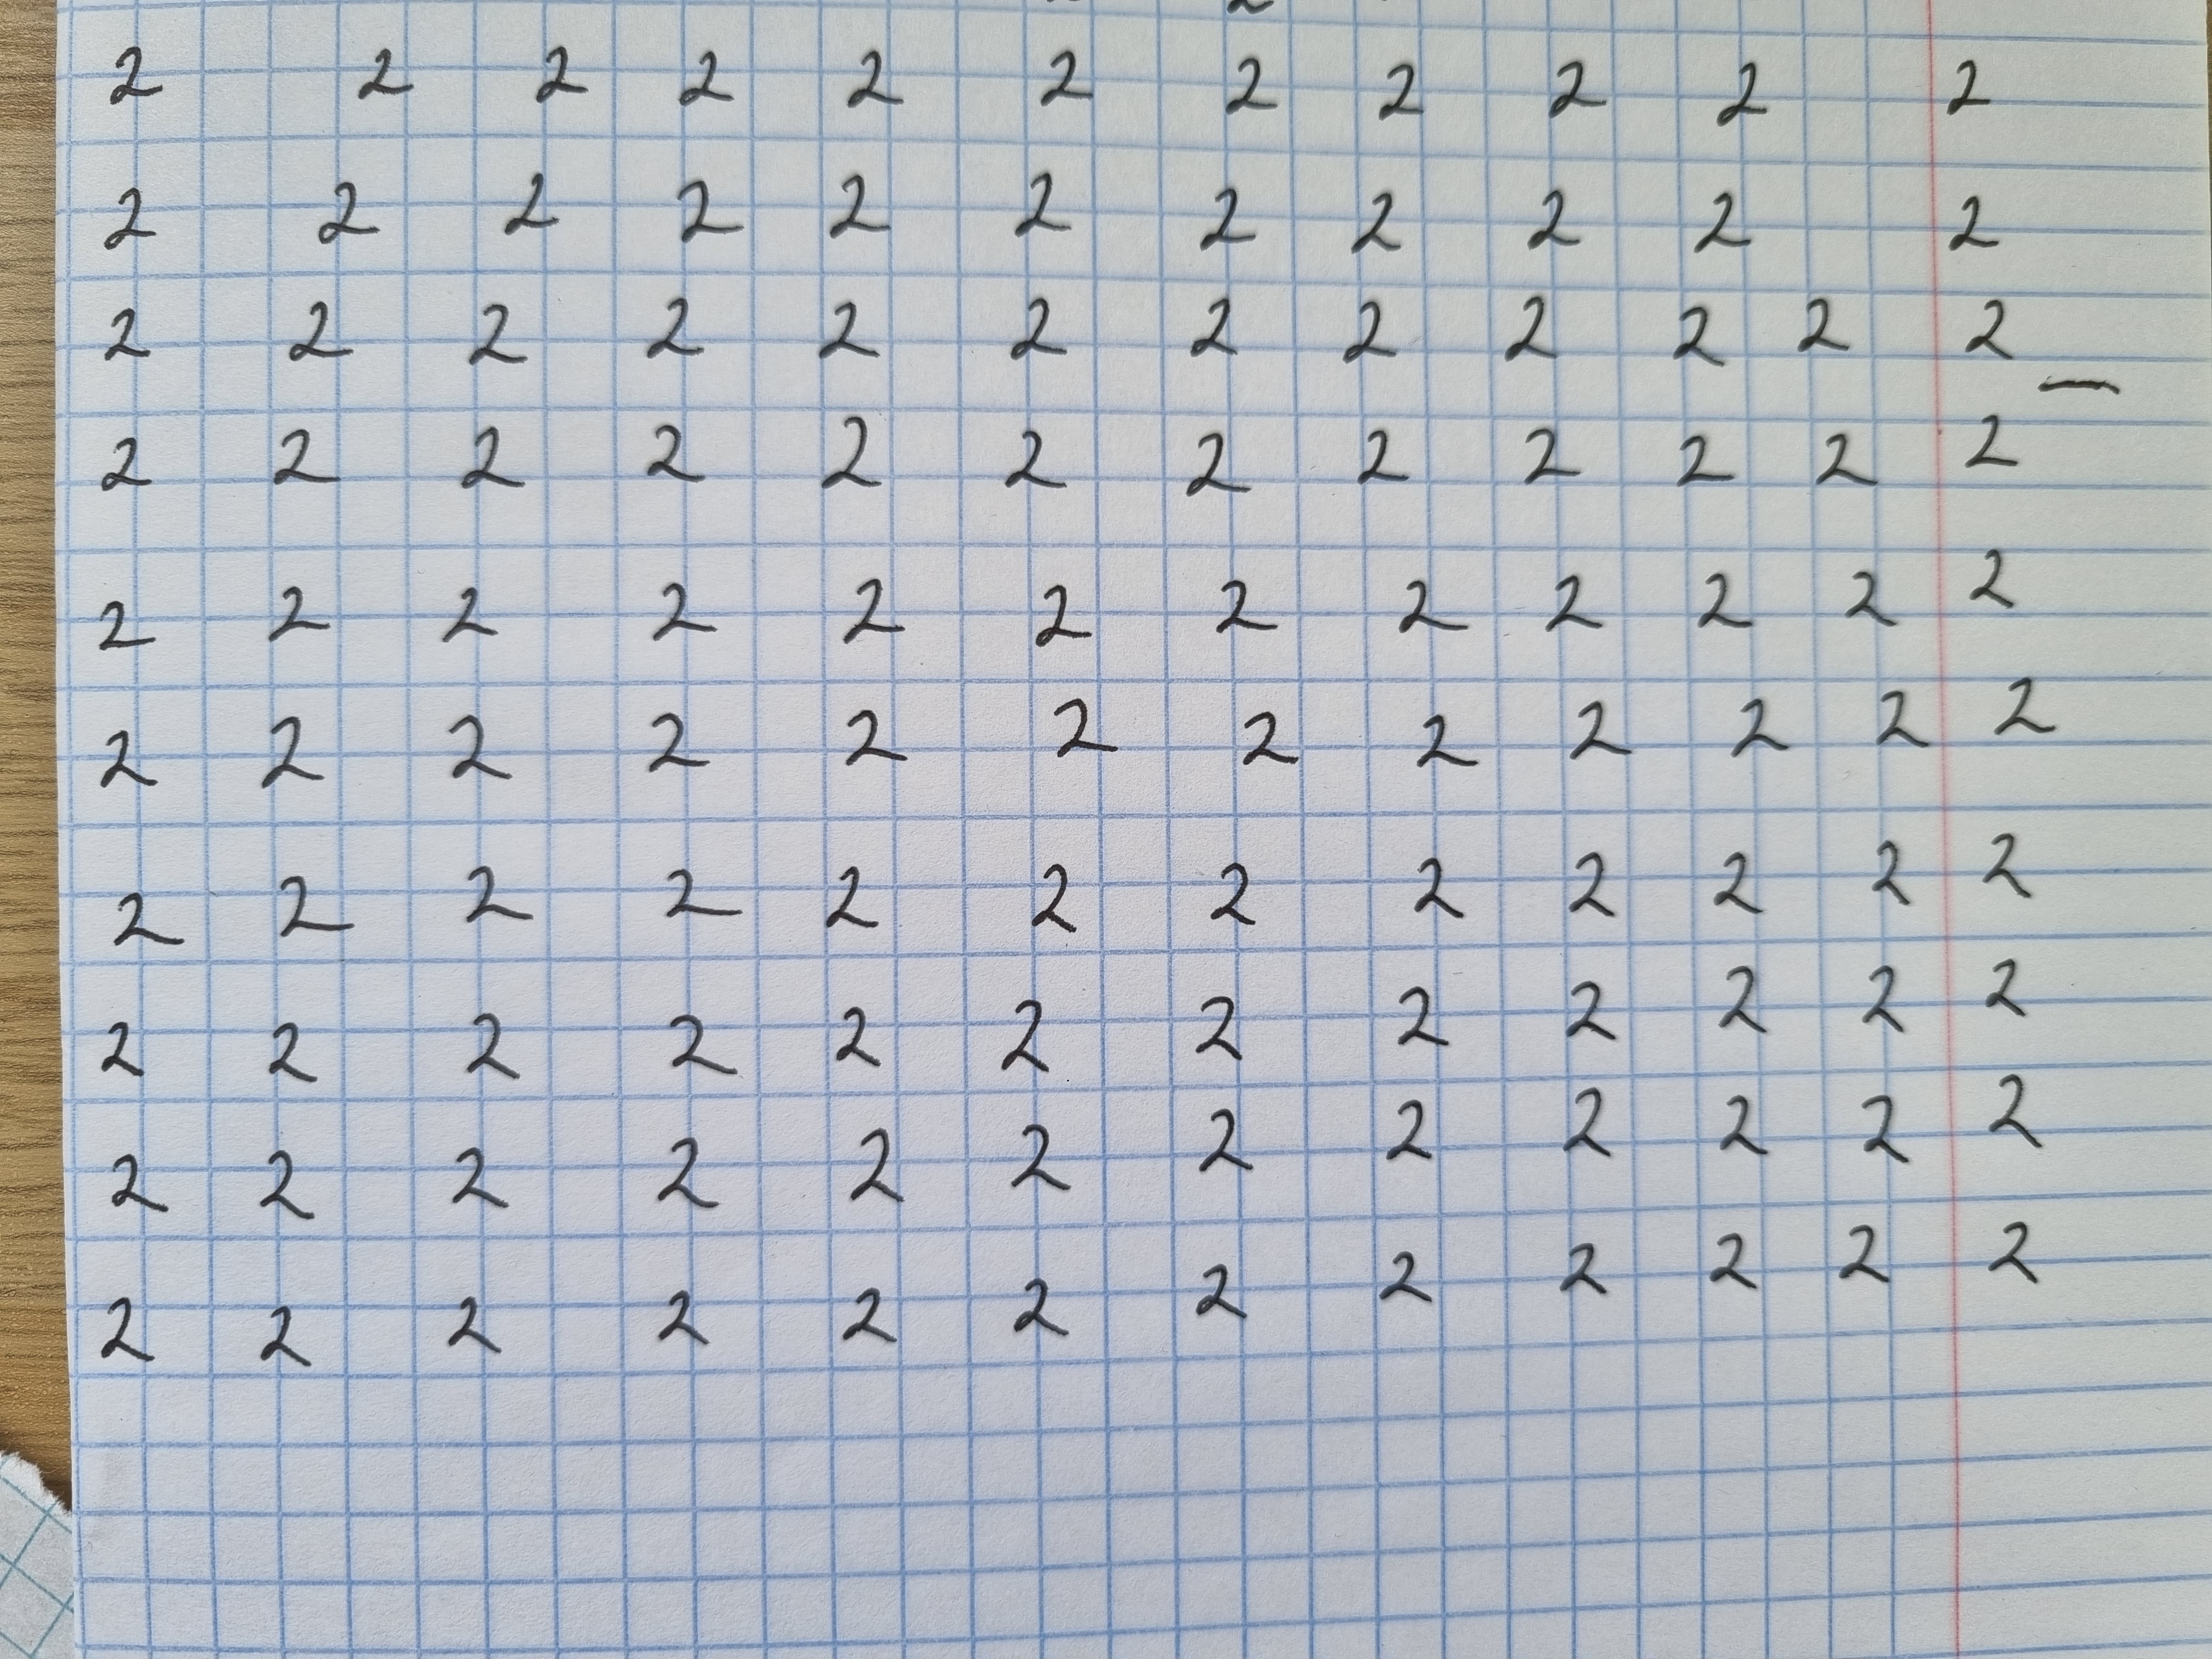 2 2 2 2 2 2 2 2 2 2 2
2 2 2 2 2 2 2 2 2 2 2
2 2 2 2 2 2 2 2 2 2 2 2
2 2 2 2 2 2 2 2 2 2 2 2
2 2 2 2 2 2 2 2 2 2 2 2
2 2 2 2 2 2 2 2 2 2 2 2
2 2 2 2 2 2 2 2 2 2 2 2
2 2 2 2 2 2 2 2 2 2 2 2
2 2 2 2 2 2 2 2 2 2 2 2
2 2 2 2 2 2 2 2 2 2 2 2